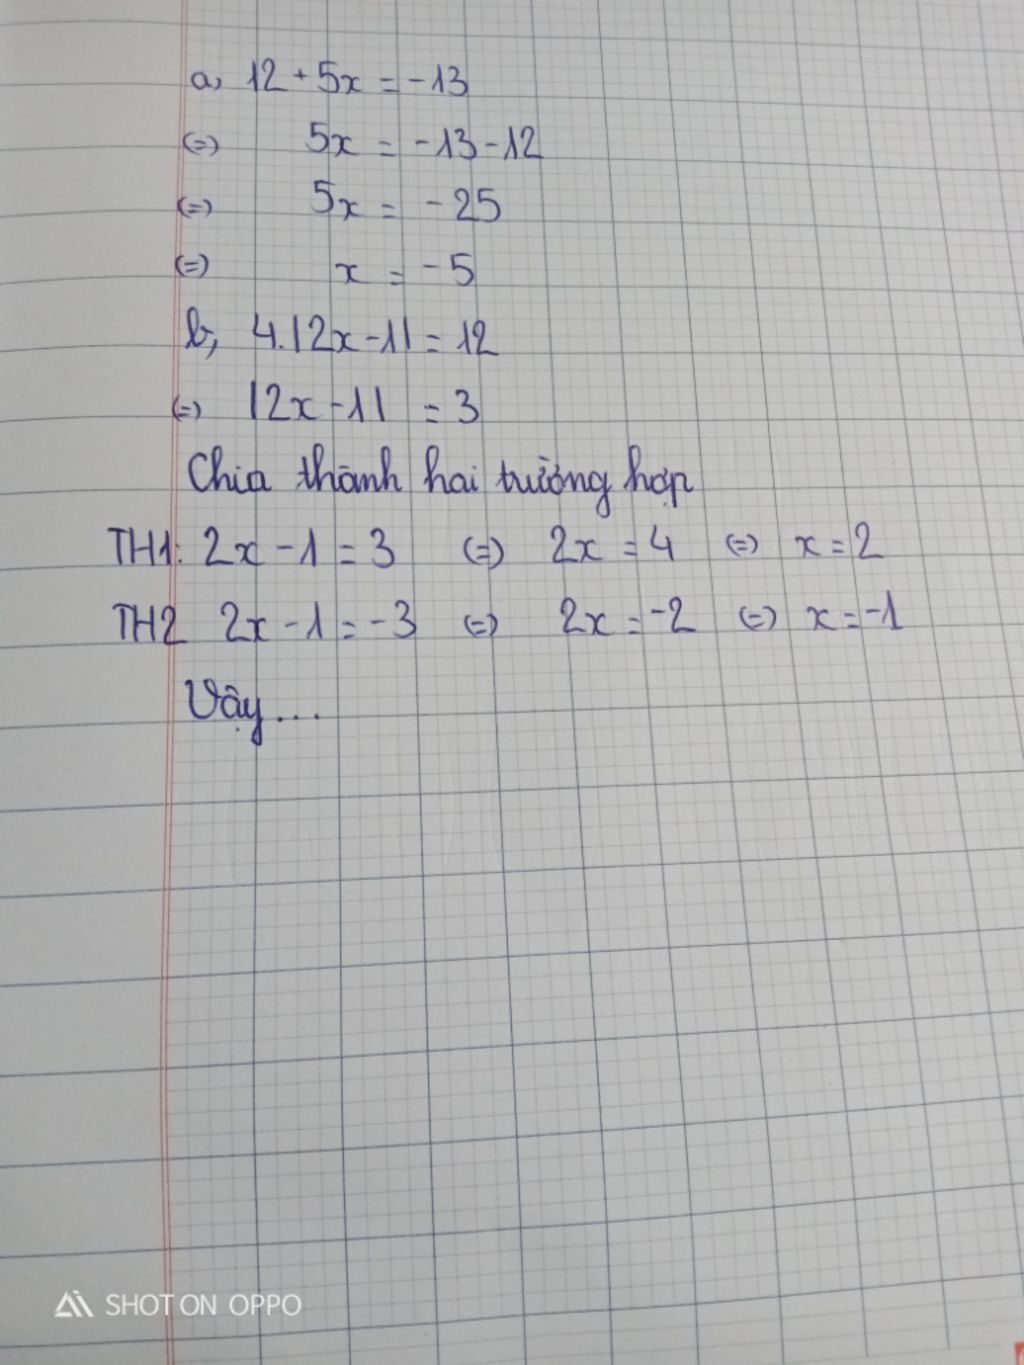 a, 12 + 5x = -13
(=) 5x = -13 - 12
(=) 5x = -25
(=) x = -5
b, 4.|2x - 1| = 12
(=) |2x - 1| = 3
Chia thành hai trường hợp
TH1: 2x - 1 = 3 (=) 2x = 4 (=) x = 2
TH2 2x - 1 = -3 (=) 2x = -2 (=) x = -1
Vậy ...
SHOT ON OPPO